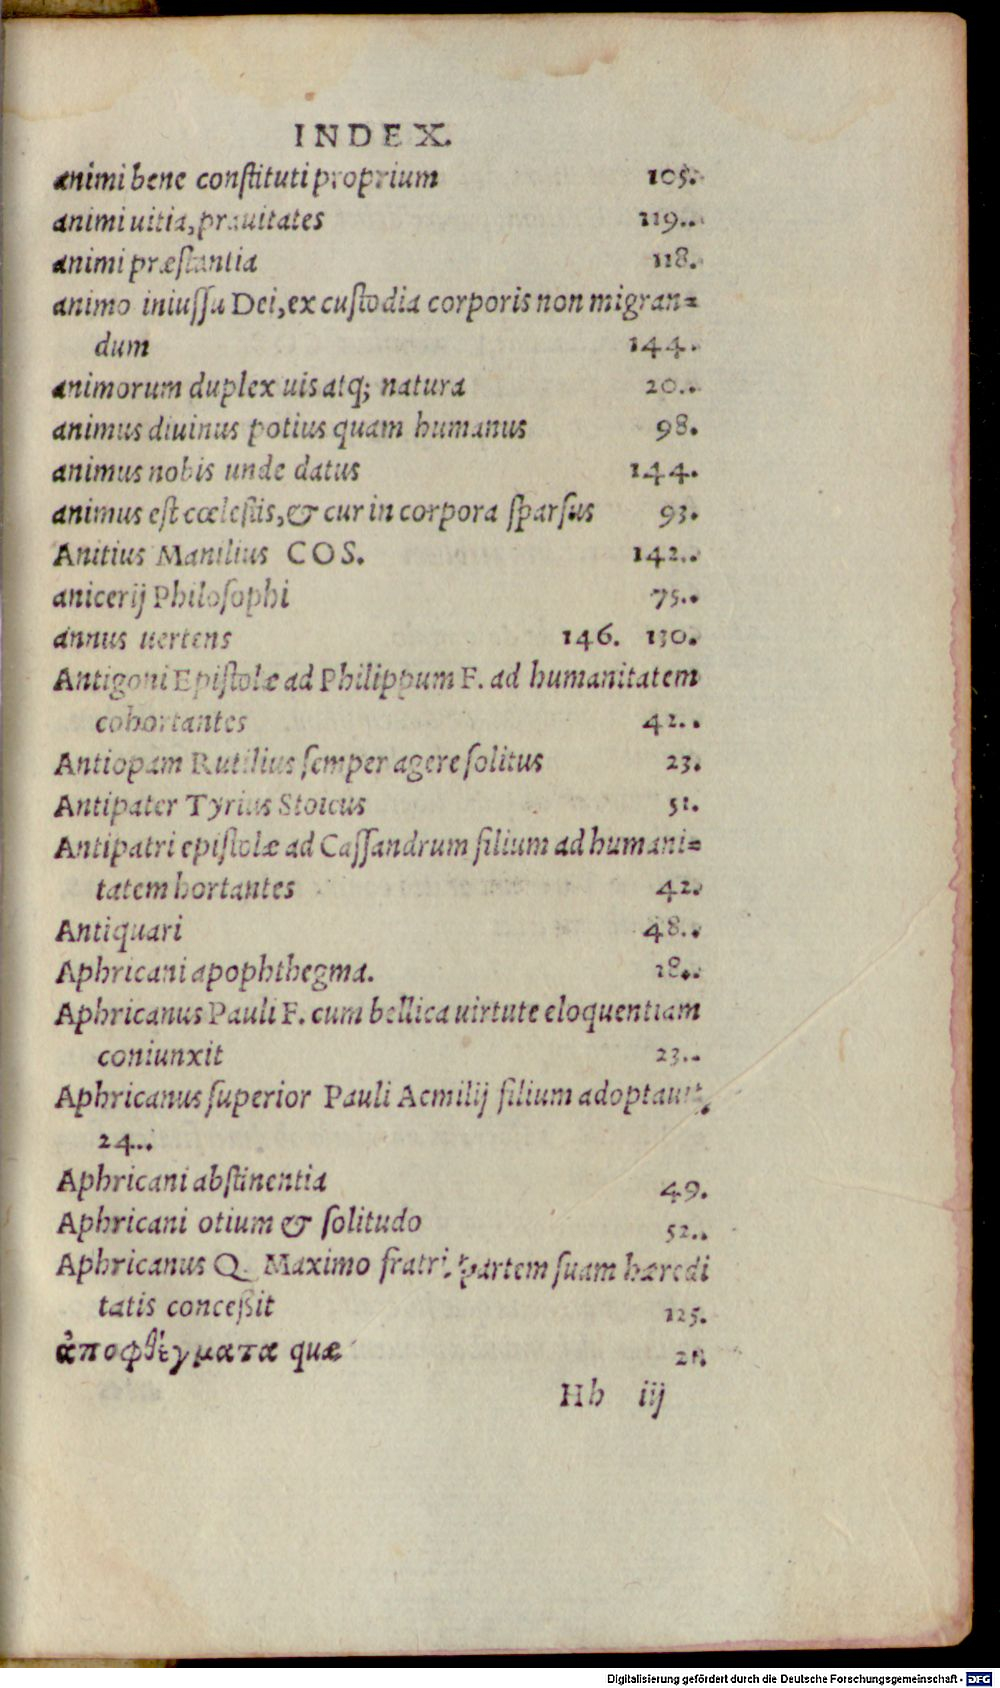 INDEX.
animi bene constituti proprium 105.
animi uitia, prauitates 119..
animi præstantia 118.
animo iniussu Dei, ex custodia corporis non migran=
dum 144.
animorum duplex uis atq; natura 20..
animus diuinus potius quam humanus 98.
animus nobis unde datus 144.
animus est cœlestis, & cur in corpora sparsus 93.
Anitius Manilius COS. 142..
anicerij Philosophi 75..
annus uertens 146. 130.
Antigoni Epistolæ ad Philippum F. ad humanitatem
cohortantes 42..
Antiopam Rutilius semper agere solitus 23.
Antipater Tyrius Stoicus 51.
Antipatri epistolæ ad Cassandrum filium ad humani=
tatem hortantes 42.
Antiquari 48..
Aphricani apophthegma. 18..
Aphricanus Pauli F. cum bellica uirtute eloquentiam
coniunxit 23..
Aphricanus superior Pauli Aemilij filium adoptauit,
24..
Aphricani abstinentia 49.
Aphricani otium & solitudo 52..
Aphricanus Q. Maximo fratri partem suam hæredi
tatis concessit 125.
ἀποφθέγματα quæ
Hh iij
Digitalisierung gefördert durch die Deutsche Forschungsgemeinschaft - DFG